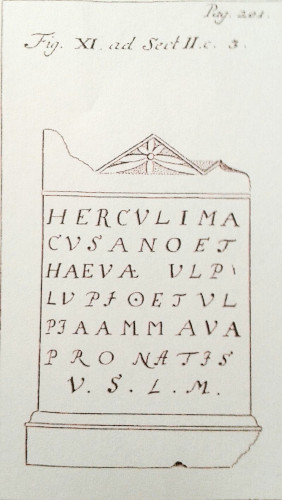 Pag. 201.
Fig. XI. ad Sect II. c. 3.
HERCVLI MA
CVSANO ET
HAEVÆ VLP
LVPIO ET VL
PIA AMMAVA
PRO NATIS
V. S. L. M.